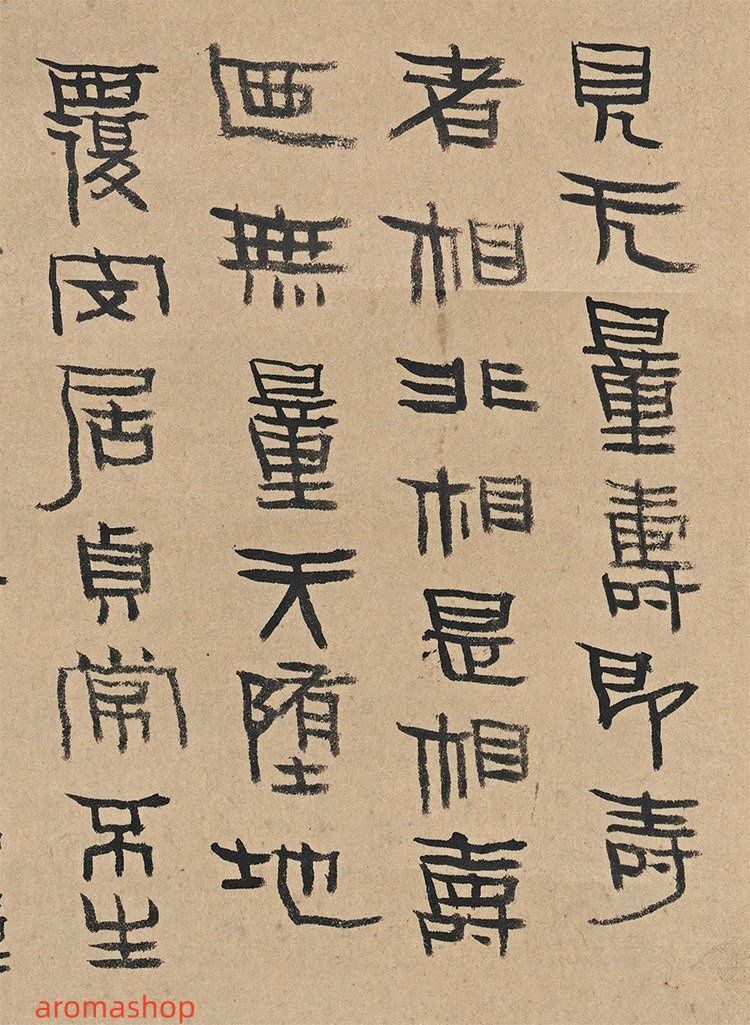 見无量壽即壽
者相非相是相壽
無量天堕地
覆安居貞常不生
aromashop